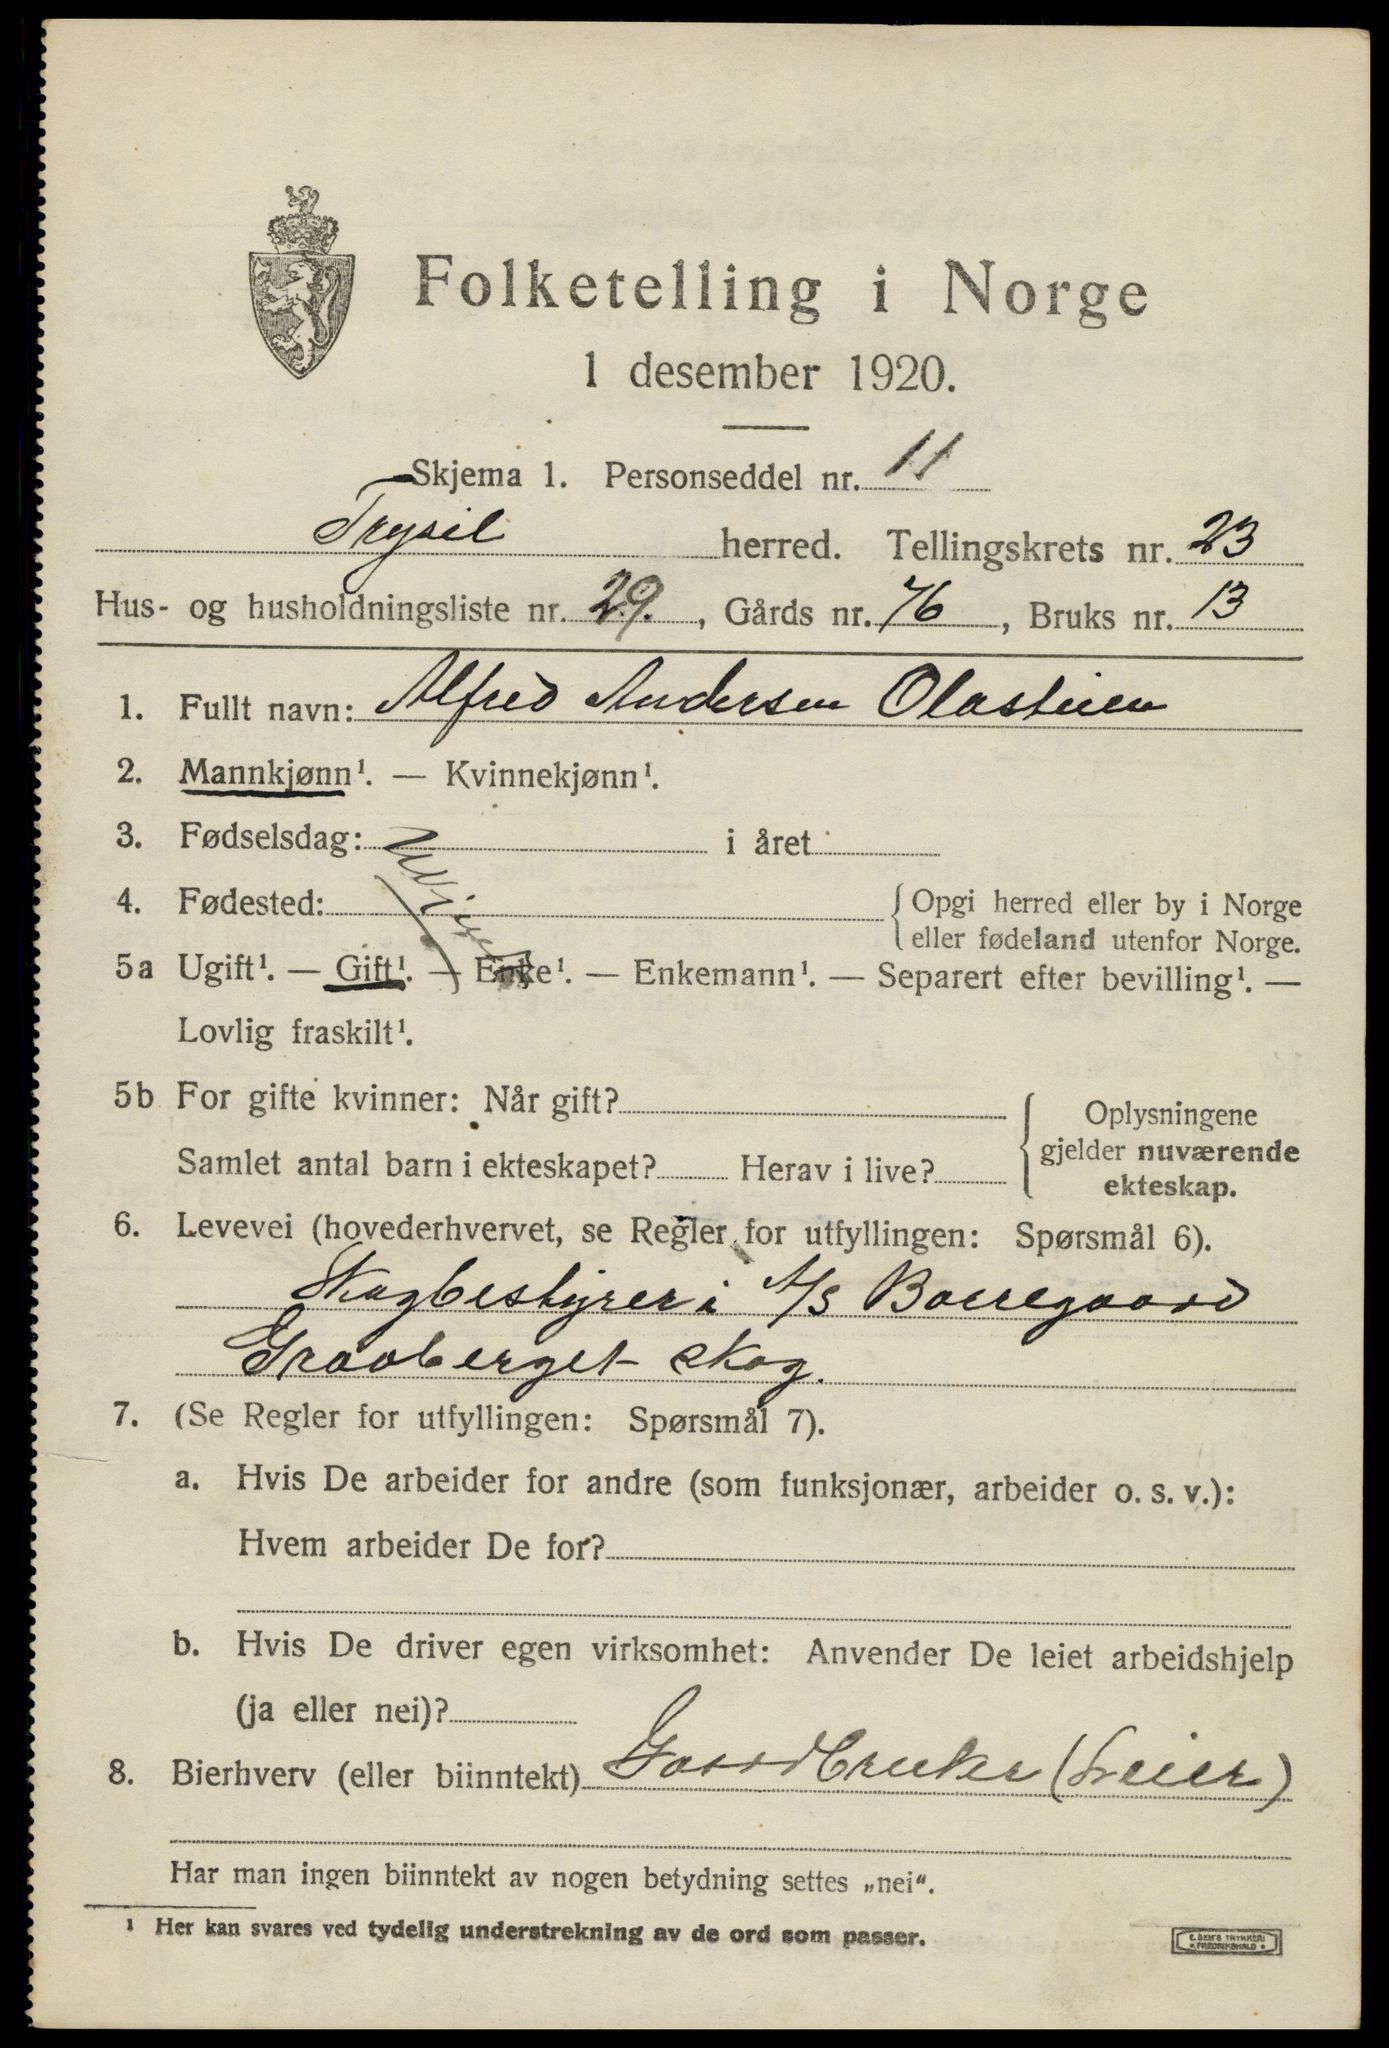 Folketelling i Norge
1 desember 1920.
Skjema 1. Personseddel nr. 11
Trysil herred. Tellingskrets nr. 23
Hus- og husholdningsliste nr. 29. , Gårds nr. 76 , Bruks nr. 13
1. Fullt navn: Alfred Andersen
2. Mannkjønn¹. — Kvinnekjønn¹.
3. Fødselsdag: i året
4. Fødested: { Opgi herred eller by i Norge
eller fødeland utenfor Norge.
5a Ugift¹. — Gift¹. — Enke¹. — Enkemann¹. — Separert efter bevilling¹. —
Lovlig fraskilt¹.
5b For gifte kvinner: Når gift?
Samlet antal barn i ekteskapet? Herav i live?
{ Oplysningene
gjelder nuværende
ekteskap.
6. Levevei (hovederhvervet, se Regler for utfyllingen: Spørsmål 6).
Skogbestyrer i A/S Borregaard
Graaberget skog.
7. (Se Regler for utfyllingen: Spørsmål 7).
a. Hvis De arbeider for andre (som funksjonær, arbeider o. s. v.):
Hvem arbeider De for?
b. Hvis De driver egen virksomhet: Anvender De leiet arbeidshjelp
(ja eller nei)?
8. Bierhverv (eller biinntekt) Gaardbruker (Leier)
Har man ingen biinntekt av nogen betydning settes „nei“.
¹ Her kan svares ved tydelig understrekning av de ord som passer.
E. SEM'S TRYKKERI
• FREDRIKSHALD •